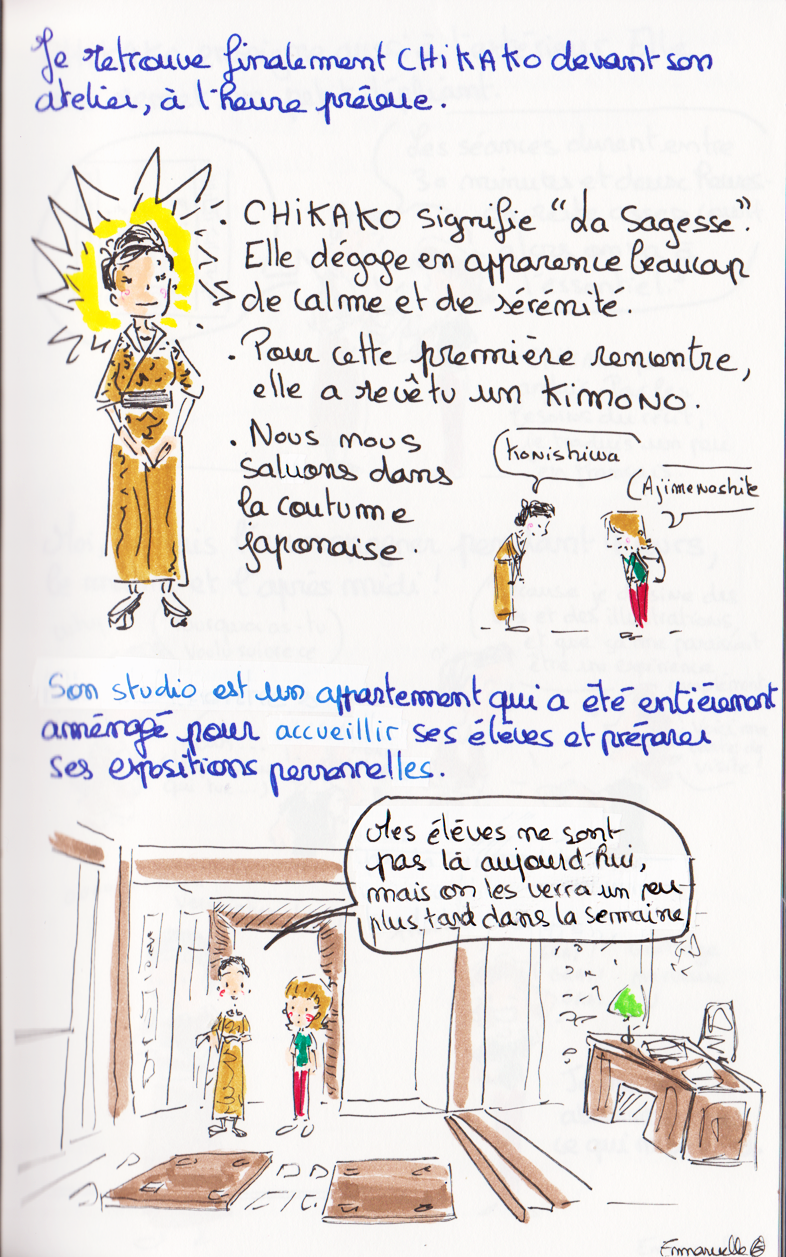 Je retrouve finalement CHIKAKO devant son
atelier, à l'heure prévue.
. CHIKAKO signifie "La Sagesse".
Elle dégage en apparence beaucoup
de calme et de sérénité.
. Pour cette première rencontre,
elle a revêtu un KIMONO.
. Nous nous
saluons dans
la coutume
japonaise.
Konishiwa
Ajimenashite
Son studio est un appartement qui a été entièrement
aménagé pour accueillir ses élèves et préparer
ses expositions personnelles.
Mes élèves ne sont
pas là aujourd'hui,
mais on les verra un peu
plus tard dans la semaine
Emmanuelle